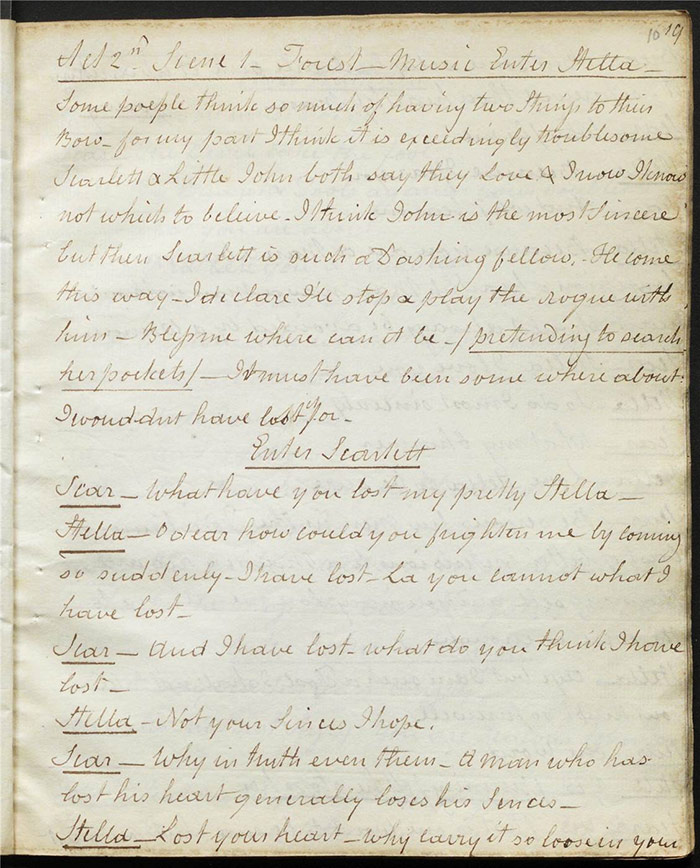 10 19
Act 2n Scene 1 - Forest - Music Enter Stella -
Some poeple think so much of having two things to thier
Bow - for my part I think it is exceedingly troublesome
Scarlett & Little John both say they Love & I now I know
not which to beleive - I think John is the most Sincere
but then Scarlett is such a Dashing fellow. - He come
this way - I declare I'll stop & play the rogue with
him - Bless me where can it be - / pretending to search
her pockets / - It must have been some where about
I wouldnt have lost it for -
Enter Scarlett
Scar - What have you lost my pretty Stella -
Stella - O dear how could you frighten me by coming
so suddenly - I have lost - La you cannot what I
have lost -
Scar - And I have lost - what do you think I have
lost -
Stella - Not your Sinces I hope.
Scar - Why in truth even them - A man who has
lost his heart generally loses his Sences -
Stella - Lost your heart - why carry it so loose in your